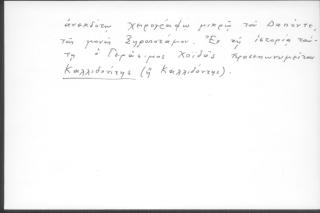 ἀνεκδότῳ χειρογράφῳ μικρῷ τοῦ Δαπόντε,
τῆς μονῆς Ξηροποτάμου. Ἐν τῇ ἱστορίᾳ ταύ-
τῃ ὁ Γεράσιμος Χοϊδᾶς προσεπωνυμεῖται
Καλλιδονίτης (ἢ Καλλιδόντης).